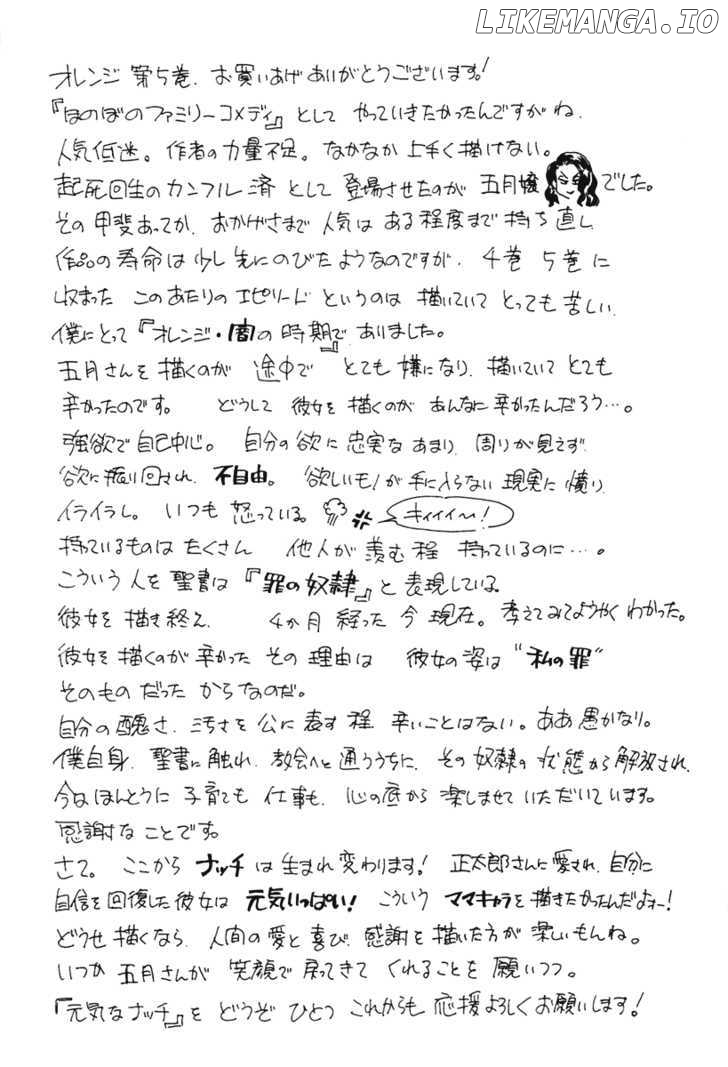 LIKEMANGA.IO
オレンジ 第5巻、お買いあげありがとうございます!
『ほのぼのファミリーコメディ』として やっていきたかったんですがね、
人気低迷。作者の力量不足。なかなか上手く描けない。
起死回生のカンフル済 として 登場させたのが 五月嬢 でした。
その甲斐あってか、おかげさまで 人気は ある程度まで 持ち直し
作品の寿命は少し先にのびたようなのですが、4巻 5巻に
収まった このあたりのエピソード というのは 描いていて とっても 苦しい、
僕にとって『オレンジ・闇の時期』で ありました。
五月さんを 描くのが 途中で とても 嫌になり、描いていて とても
辛かったのです。 どうして 彼女を 描くのが あんなに 辛かったんだろう…。
強欲で自己中心。自分の欲に忠実な あまり、周りが見えず、
欲に振り回され、不自由。欲しいモノが手に入らない 現実に 憤り、
イライラし。いつも 怒っている。 キィイイ〜!
持っているものは たくさん 他人が 羨む程 持っているのに…。
こういう 人を 聖書は『罪の奴隷』と 表現している。
彼女を 描き終え、 4か月 経った 今 現在。考えてみてようやく わかった。
彼女を 描くのが 辛かった その 理由は 彼女の姿は "私の罪"
そのもの だった からなのだ。
自分の醜さ、汚さを 公に 表す 程 辛いことはない。ああ 愚かなり。
僕自身、聖書に触れ、教会へと 通ううちに、その 奴隷の 状態から 解放され、
今はほんとうに 子育ても 仕事も、心の底から 楽しませて いただいています。
感謝な ことです。
さて。ここから ナッチ は 生まれ変わります! 正太郎さんに 愛され、自分に
自信を 回復した彼女は 元気いっぱい! こういう ママキャラを 描きたかったんだよォー!
どうせ 描くなら、人間の 愛と 喜び、感謝を 描いた方が 楽しいもんね。
いつか 五月さんが 笑顔で 戻ってきて くれることを 願いつつ。
『元気なナッチ』を どうぞ ひとつ これからも 応援よろしくお願いします!